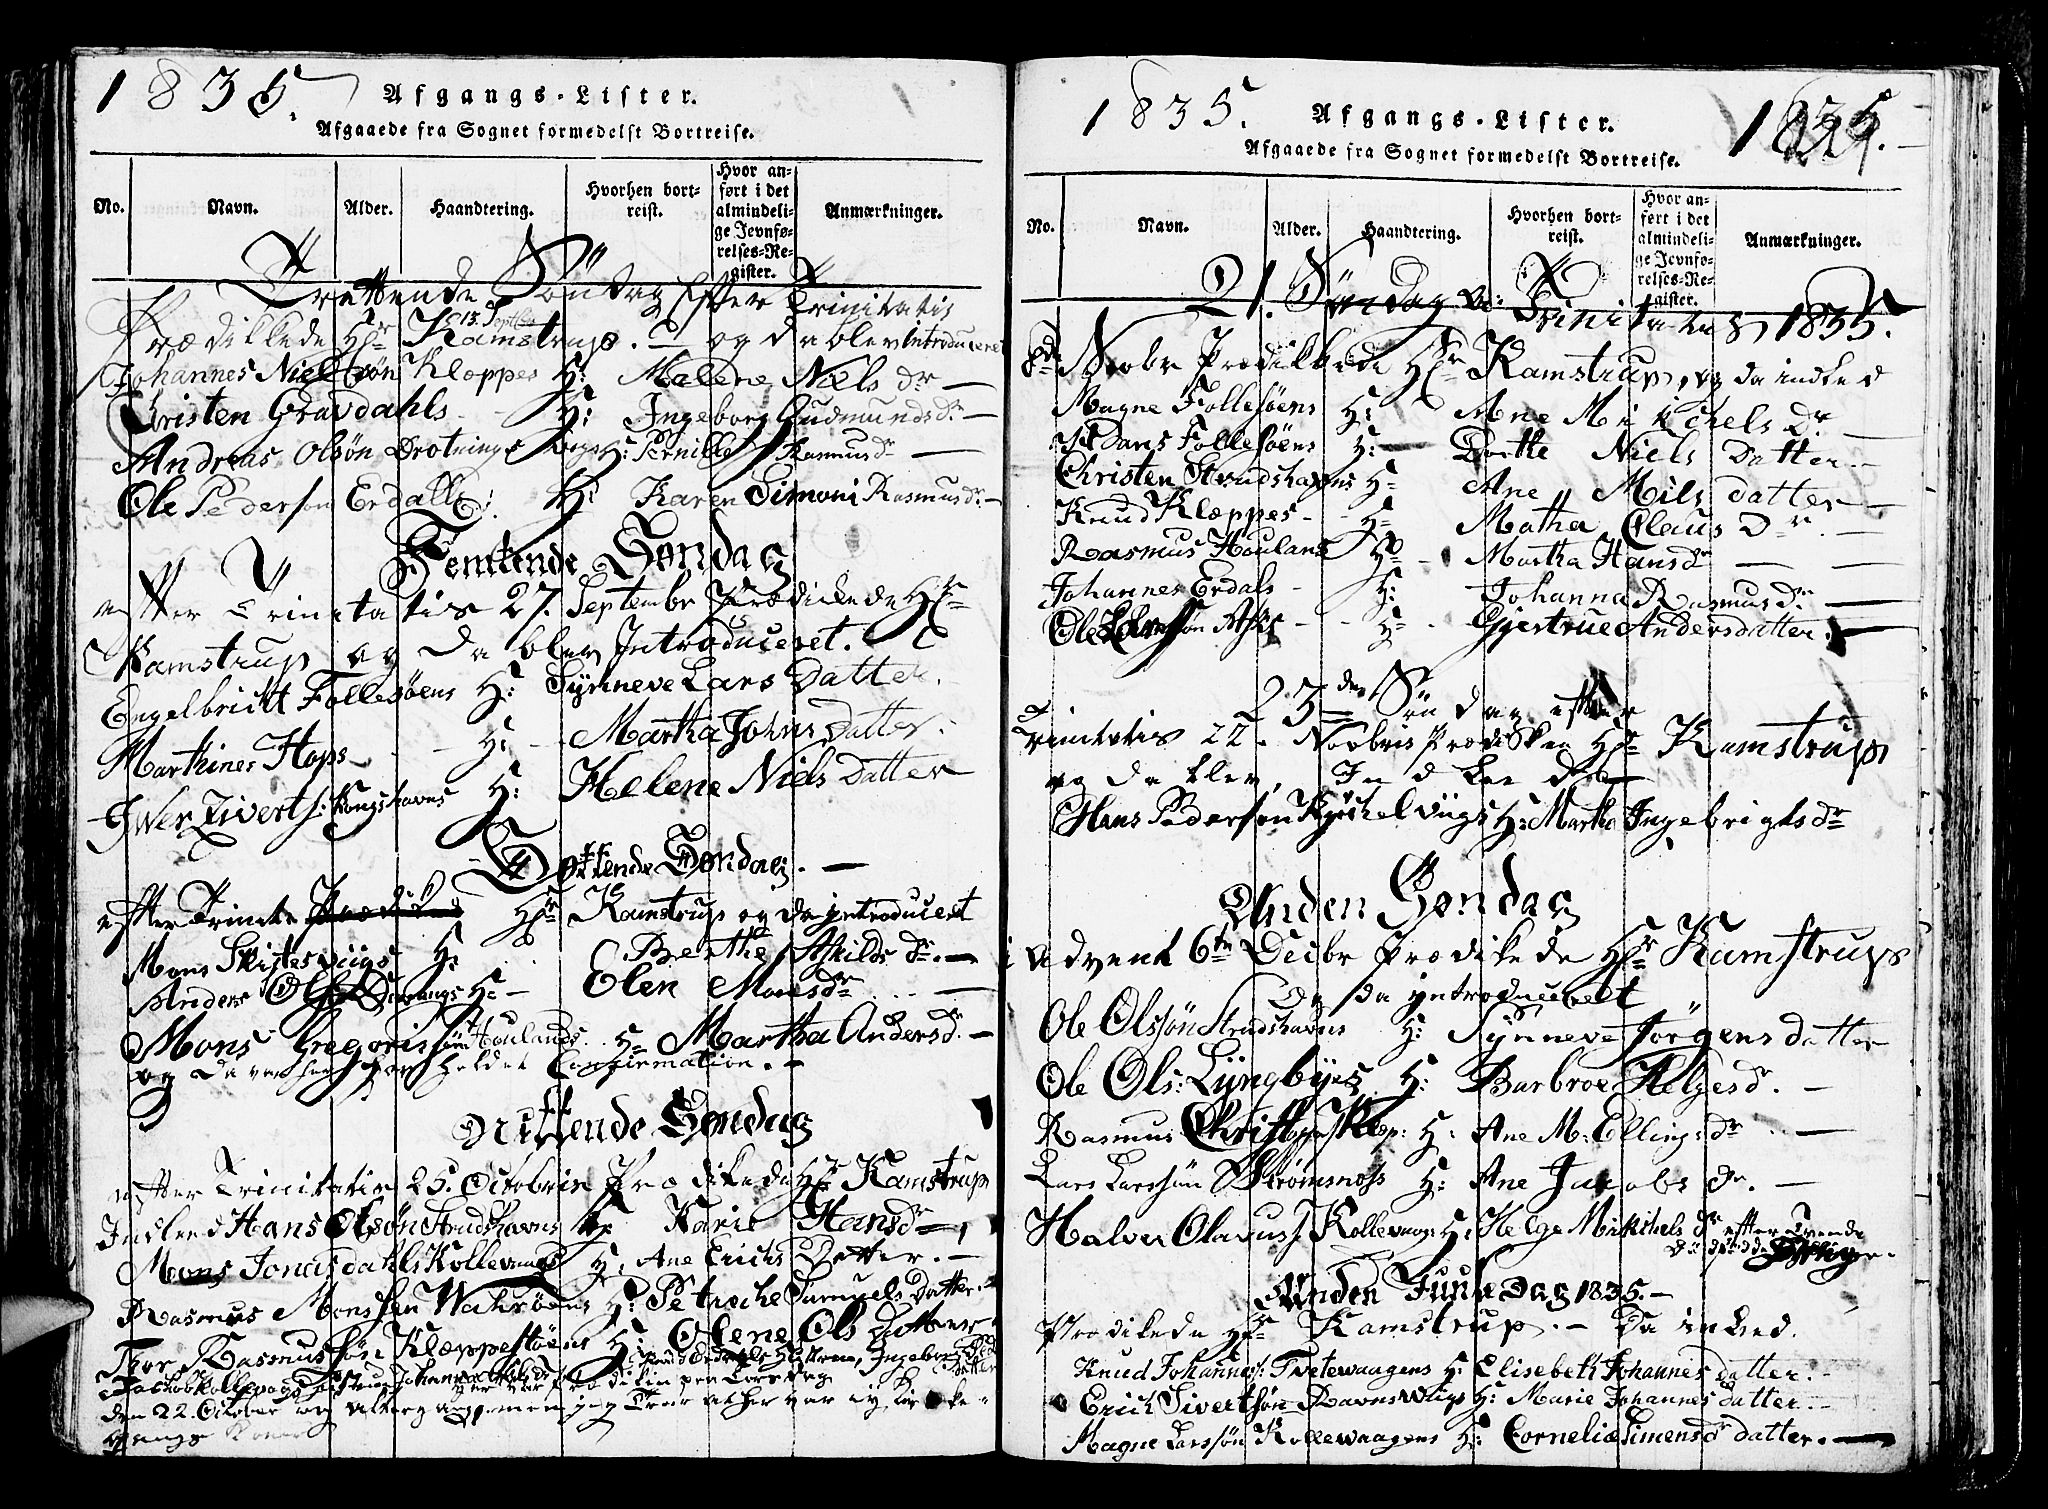 1835.
Afgangs-Lister.
Afgaaede fra Sognet formedelst Bortreise.
No. Navn. Alder. Haandtering. Hvorhen bortreist. Hvor anført i det almindelige Jevnførelses-Register. Anmærkninger.
Trettende Söndag Efter Trinitatis
Prædikkede Hr Kamstrup. og da blev Introduceret
13. Septbr
Johannes Nielssön Kloppes H: Malene Niels Dr
Christen Gravdahls H: Ingeborg Gudmundsdr
Andreas Olsön Drotningsborgs H: Pernille Rasmusdr
Ole Pederson Erdalls H: Karen Simoni Rasmusdr
Femtende Søndag
efter Trinitatis 27. Septembr Prædikede Hr
Kamstrup og da blev Introduceret.
Engelbricht Follesöens H: Synneve Lars Datter.
Marthines Hops H: Martha Johns Datter.
Iver Zivert s: Kongshavns H: Helene Niels Datter
Søttende Søndag.
efter Trinit: Hr Kamstrup og da yntroducert
Mons Skiftesviigs H: Berthe Askilds dr.
Anders H: Elen Monsdr
Mons Gregorissön Houlands H: Martha Andersdr.
og da var holdet Confirmation.
Nittende Søndag
efter Trinitatis 25. Octobris Prædikede Hr Kamstrup
Indled Hans Olsön Strudshavns H: Karie Hansdr
Mons Jonasdahls Kollevaags H: Ane Erichs Datter.
Rasmus Monssen Wahröens H: Petroche Samuels Datter.
Thor Rasmussön Klæppestöens H: Olene Ols Datter
den 22. October
1835.
Afgangs-Lister.
1835.
Afgaaede fra Sognet formedelst Bortreise.
No. Navn. Alder. Haandtering. Hvorhen bortreist. Hvor anført i det almindelige Jevnførelses-Register. Anmærkninger.
21. Söndag Trinitatis 1835.
8de Novbr Prædikkede Hr Kamstrup, og da indled
Magne Follesöens H: Ane Michels Dr
Follesöens H: Dorthe Niels Datter
Christen Strudshavns H: Ane Nils datter
Knud Klæppes H: Matha Claus Dr.
Rasmus Houland H: Martha Hansdr
Johannes Erdals H: Johanna Rasmusdr
Ole Ask H: Gjertrue Andersdatter.
23de Söndag efter
Trinitatis 22. Novbris Prædikken Hr Kamstrup
og da blev, Indledet
Hans Pedersøn Kjöckelviigs H: Martha Ingebrigtsdr
Anden Søndag
i Advent 6te Decbr Prædikede Hr Kamstrup
Og da yntroduceret
Ole Olssön Strudshavns H: Synneve Jörgens datter
Ole Ols: Lyngbyes H: Barbroe Helgesdr.
Rasmus H: Ane M: Ellingsdr
Lars Larssön Strömsnæss H: Ane Jacobs dr.
Halver Olavus s. Kollevaag H: Helge Mickchels dr efter Tvende
Anden Juule Dag 1835.
Prædikede Hr Kamstrup. Da inled.
Knud Johanness: Tvetevaagens H: Elisebeth Johannes datter.
Erich Sivertsön Ravnswaags H: Marie Johannes datter
Magne Larssön Kollewaagens H: Cornelia Simensdr datter.